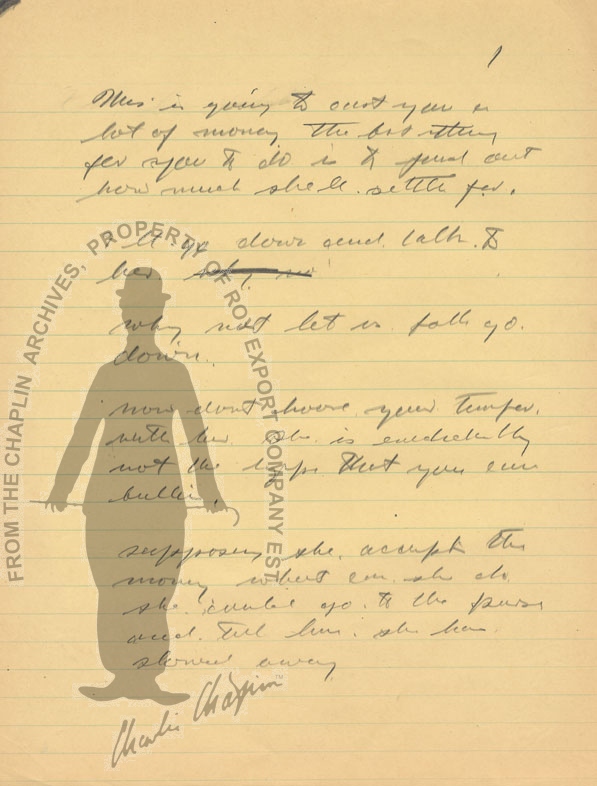 1
This is going to cost you a
lot of money. The best thing
for you to do is to find out
how much she'll settle for.
I'll go down and talk to
her why no
why not let us both go
down.
now dont loose your temper.
with her she is
not the type that you can
bullie.
supposing she accepts the
money what can she do
she could go to the
and tell him she has
stowed away
FROM THE CHAPLIN ARCHIVES, PROPERTY OF ROY EXPORT COMPANY EST
Charlie Chaplin™